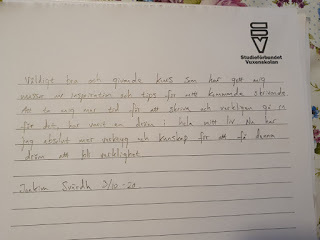 Studieförbundet
Vuxenskolan
Väldigt bra och givande kurs som har gett mig
massor av inspiration och tips för mitt kommande skrivande
Att ta mig mer tid för att skriva och verkligen gå in
för det, har varit en dröm i hela mitt liv. Nu har
jag absolut mer verktyg och kunskap för att få denna
dröm att bli verklighet.
Joakim 2/10-20